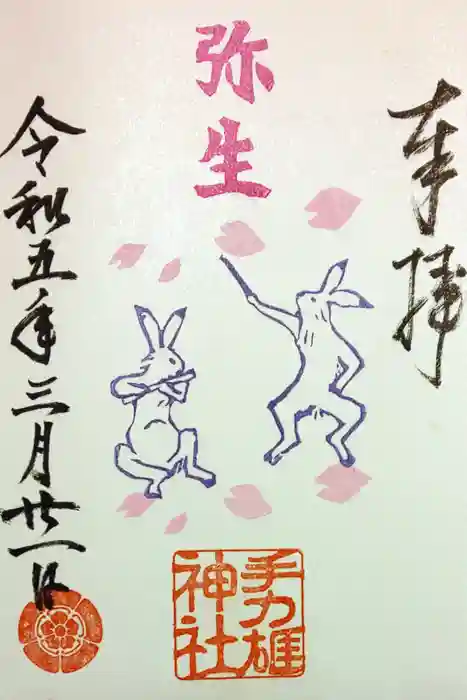 奉拝
弥生
令和五年三月廿一日
手力雄
神社